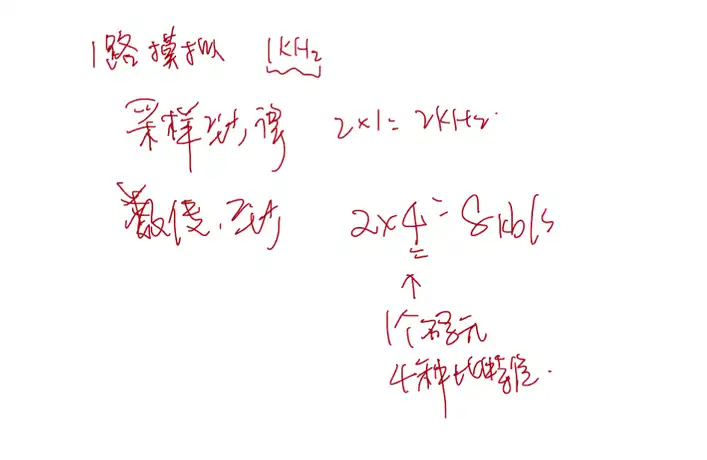 1路模拟 1KHz
采样 2×1=2KHz.
数传 2×4=8kb/s
1个码元
4种比特